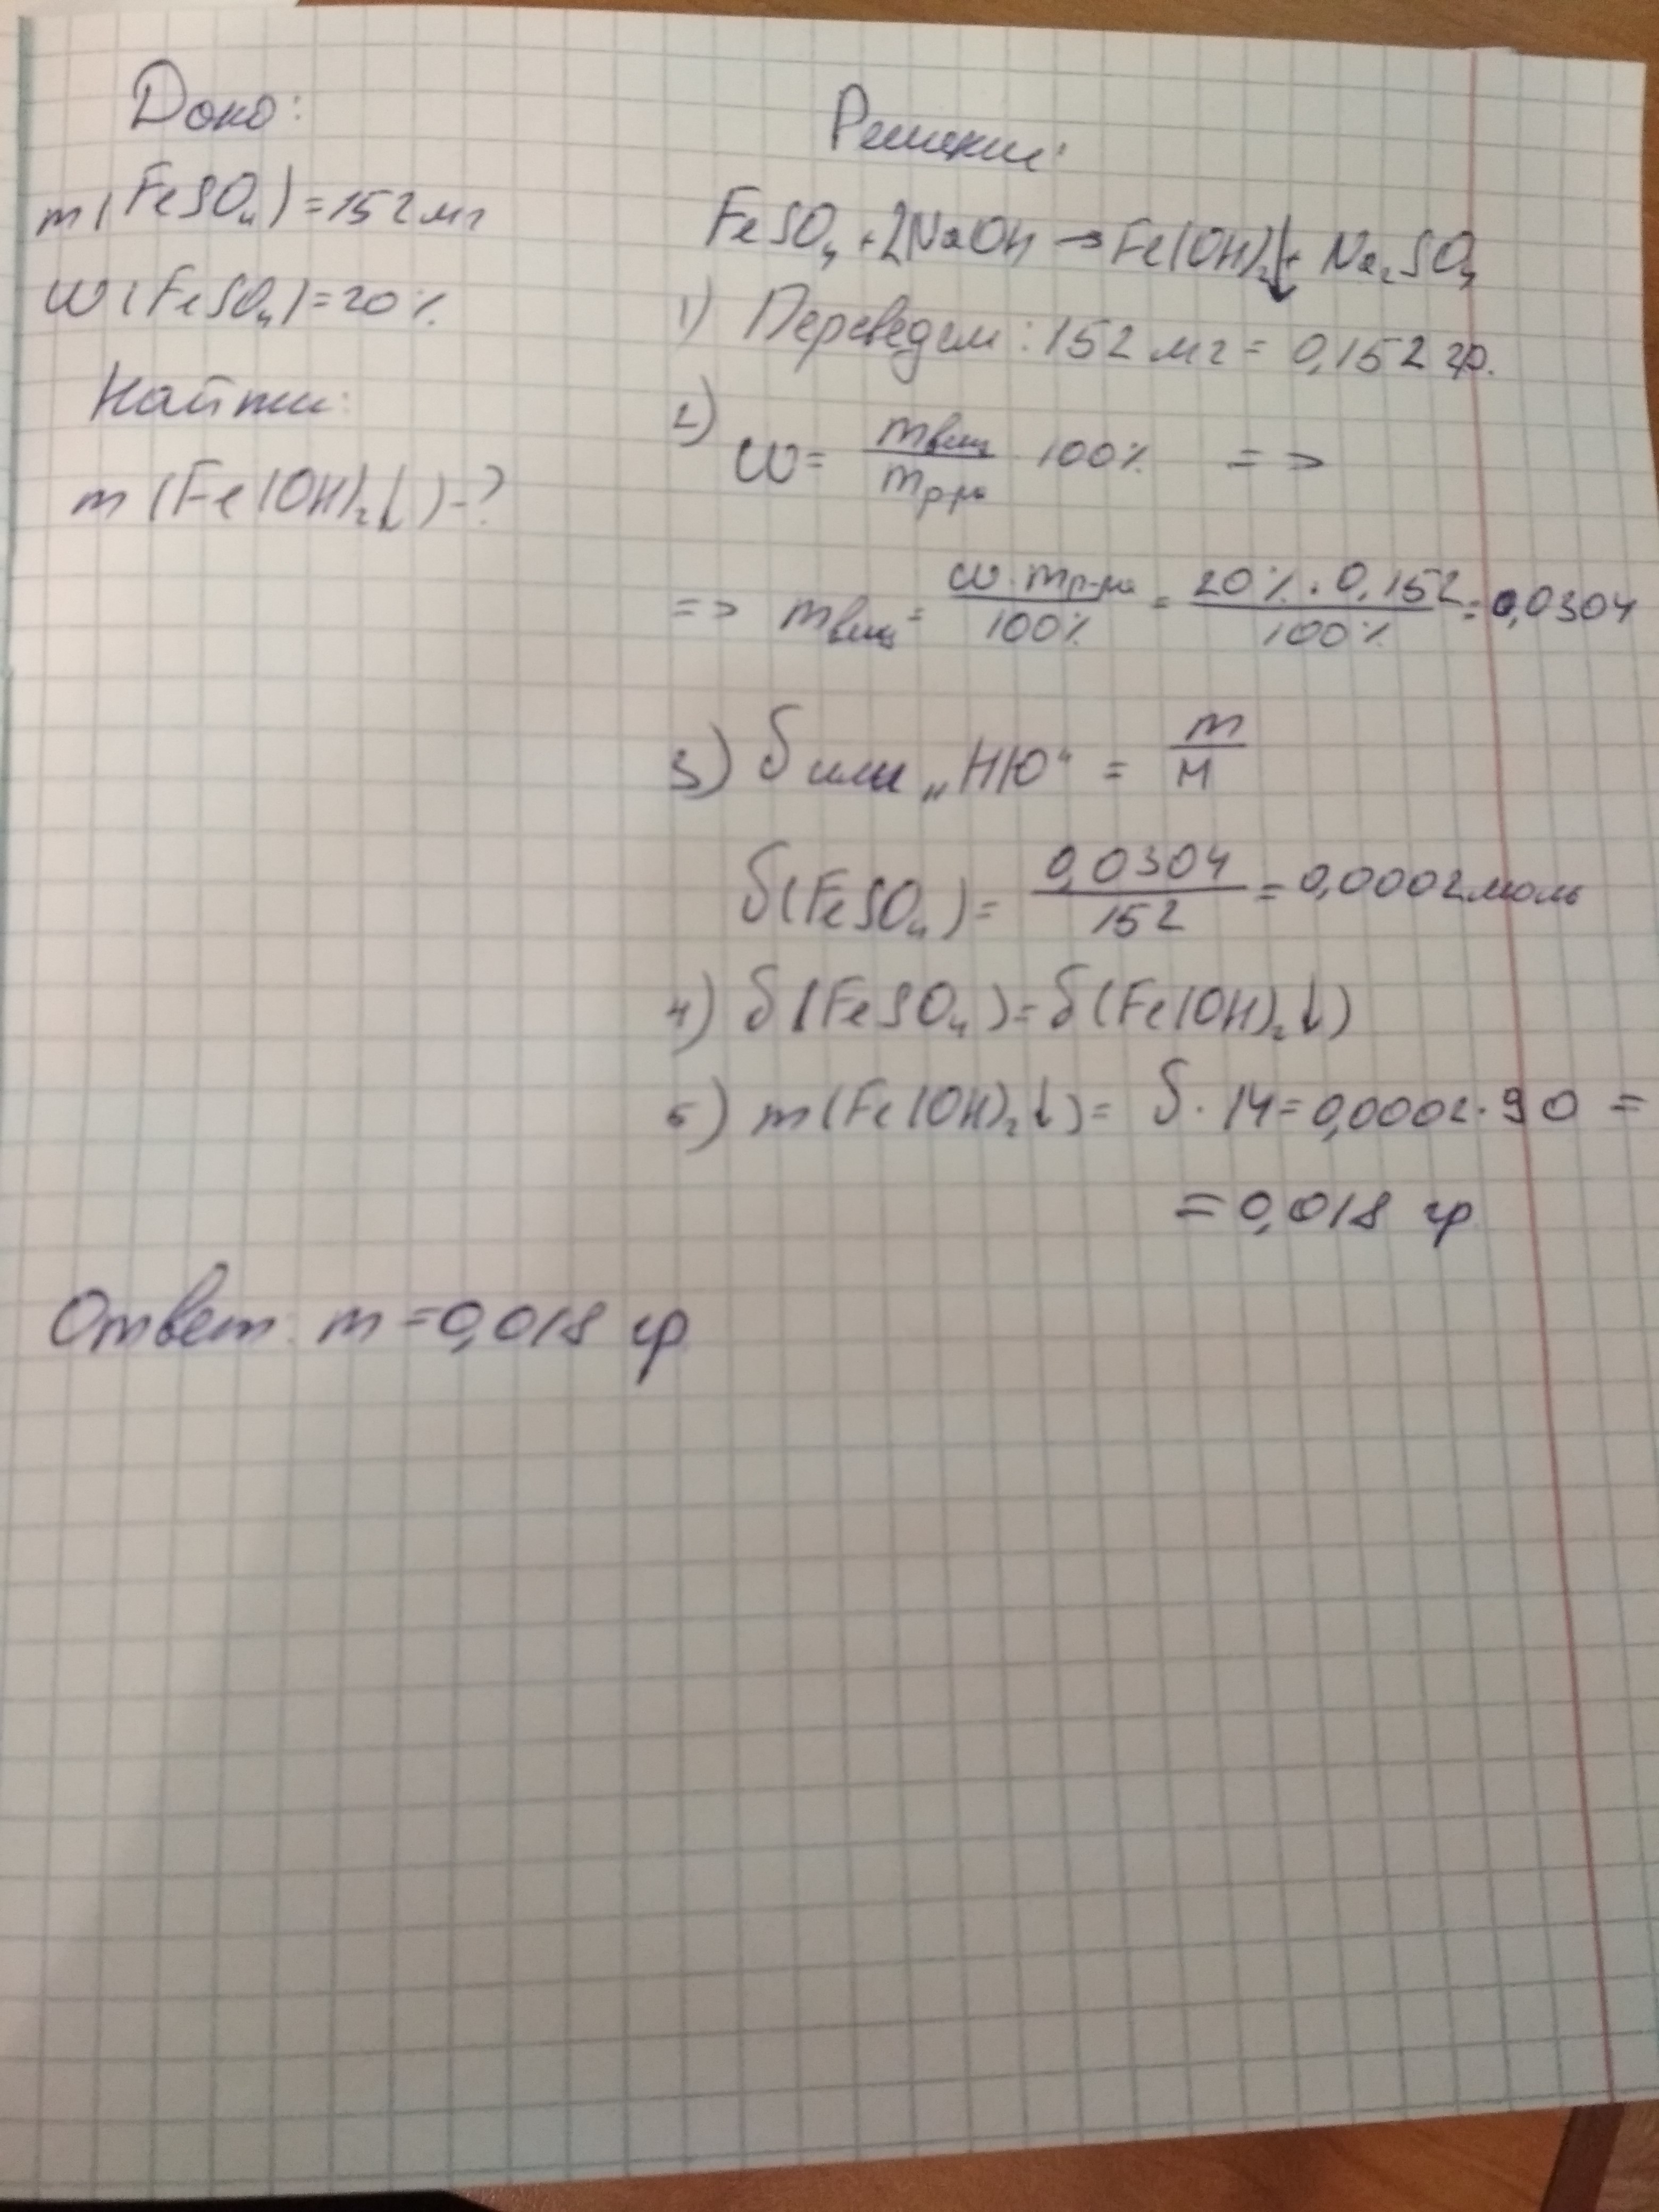 Дано:
m(FeSO₄)=152мг
ω(FeSO₄)=20%
Найти:
m(Fe(OH)₂↓)-?
Решение:
FeSO₄+2NaOH→Fe(OH)₂↓+Na₂SO₄
1) Переведем: 152 мг = 0,152 гр.
2) ω = mвещ/mр-ра · 100% =>
=> mвещ = ω·mр-ра/100% = 20%·0,152/100% = 0,0304
3) δ или „НЮ“ = m/M
δ(FeSO₄) = 0,0304/152 = 0,0002моль
4) δ(FeSO₄)=δ(Fe(OH)₂↓)
5) m(Fe(OH)₂↓)= δ·M=0,0002·90 =
=0,018 гр
Ответ: m=0,018 гр